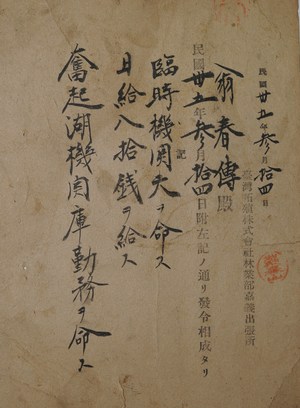 民國卅五年叄月拾四日
臺灣拓殖株式會社林業部嘉義出張所
翁春傳殿
民國卅五年叄月拾四日附左記ノ通リ發令相成タリ
記
臨時機関夫ヲ命ス
日給八拾銭ヲ給ス
奮起湖機関庫勤務ヲ命ス